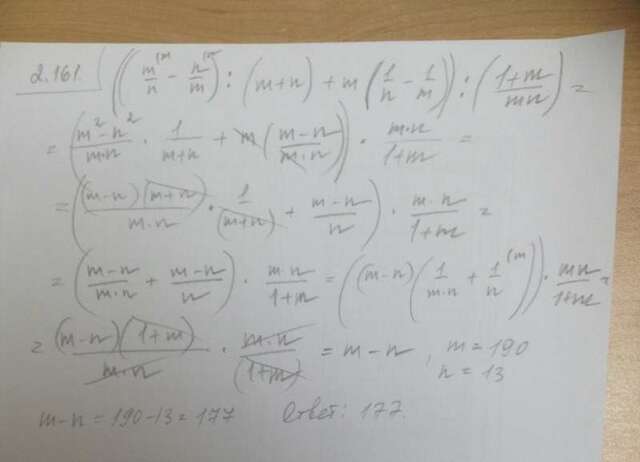 2.161. ((m/n^(m - n/m^(n) : (m+n) + m (1/n - 1/m)) : (1+m/mn) =
= (m²-n²/m·n · 1/m+n + m (m-n/m·n)) · m·n/1+m =
= ((m-n)(m+n)/m·n · 1/(m+n) + m-n/n) · m·n/1+m =
= (m-n/m·n + m-n/n) · m·n/1+m = ((m-n)(1/m·n + 1/n^(m)) · mn/1+m =
= (m-n)(1+m)/m·n · m·n/(1+m) = m-n , m=190
n=13
m-n = 190-13 = 177 Ответ: 177.